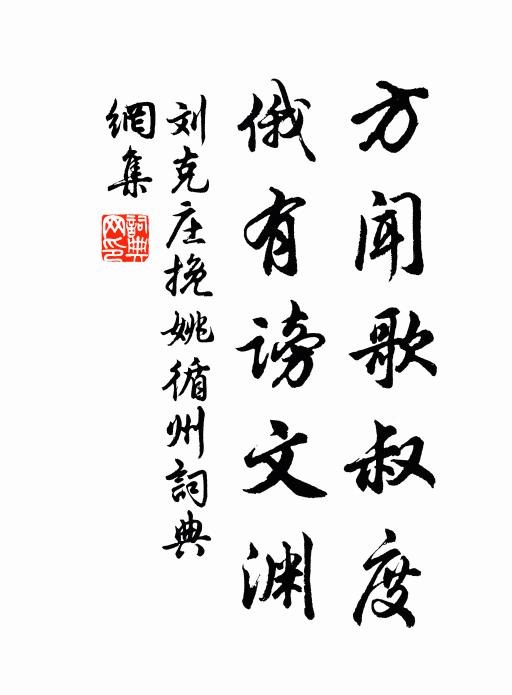 方闻歌叔度
俄有谤文渊
刘克庄挽姚循州詞典
網集
詞典
网印